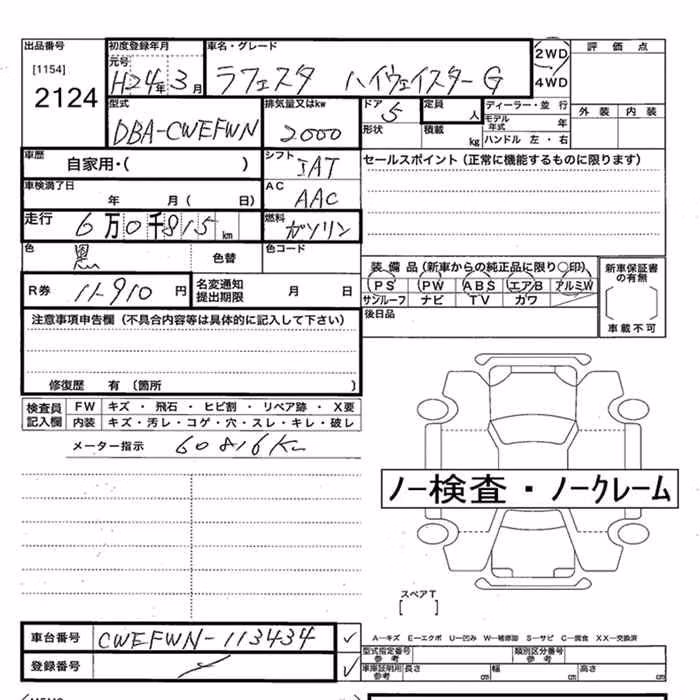 出品番号 初度登録年月 車名・グレード 2WD 評価点
[1154] 元号 4WD
2124 H24年3月 ラフェスタ ハイウェイスターG
型式 排気量又はkw ドア 定員 ディーラー・並行 外装 内装
DBA-CWEFWN 2000 5 人 モデル年式 年
形状 積載 kg ハンドル 左・右
車歴 自家用・( ) シフト IAT セールスポイント(正常に機能するものに限ります)
車検満了日 年 月( 日) AC AAC
走行 6万0千815km 燃料 ガソリン
色 黒 色替 色コード 装備品(新車からの純正品に限り○印) 新車保証書の有無
R券 11-910円 名変通知提出期限 月 日 PS PW ABS エアB アルミW
サンルーフ ナビ TV カワ
注意事項申告欄(不具合内容等は具体的に記入して下さい) 後日品 車載不可
修復歴 有〔箇所 〕
検査員記入欄 FW キズ・飛石・ヒビ割・リペア跡・X要
内装 キズ・汚レ・コゲ・穴・スレ・キレ・破レ
メーター指示 60816Km
ノー検査・ノークレーム
スペアT
[ ]
車台番号 CWEFWN-113434 A-キズ E-エクボ U-凹み W-補修跡 S-サビ C-腐食 XX-交換済
型式指定番号 参考 類別区分番号 参考
登録番号 車庫証明用参考 長さ cm 幅 cm 高さ cm